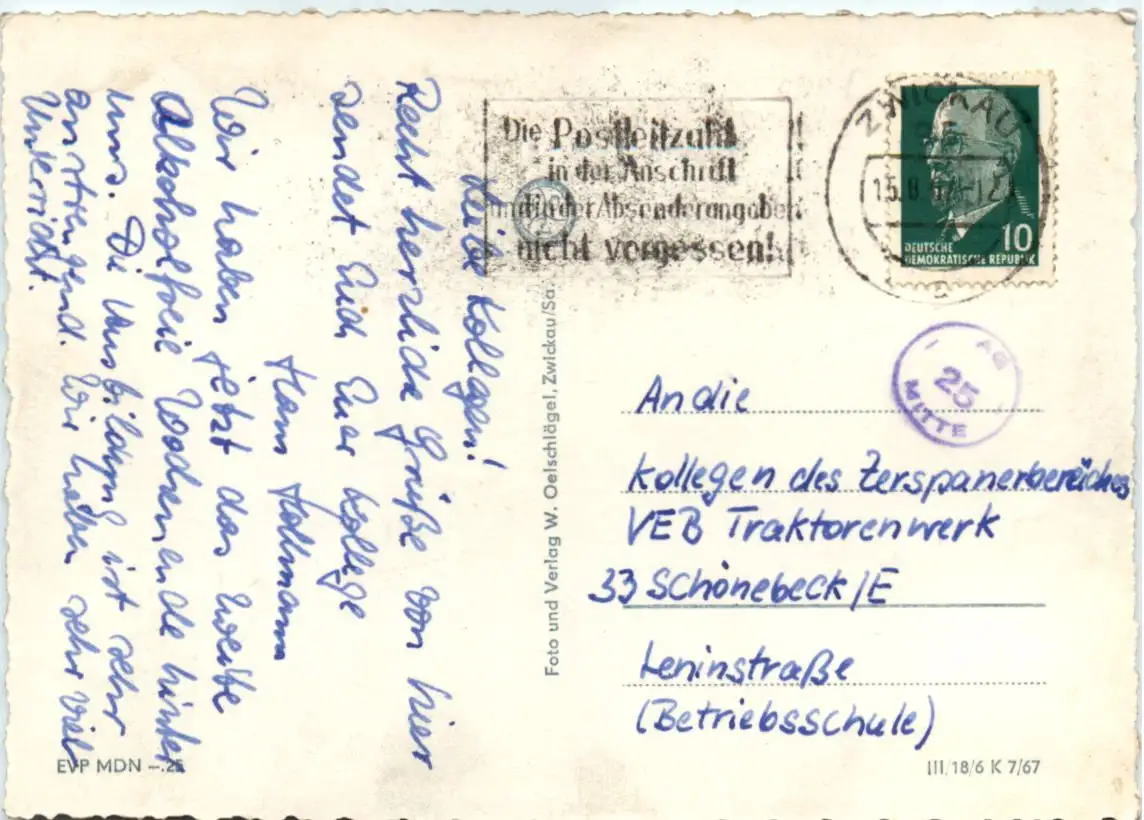 Liebe Kollegen!
Recht herzliche Grüße von hier
sendet Euch Euer Kollege
Hans
Wir haben jetzt das zweite
Alkoholfreie Wochenende hinter
uns. Die Ausbildung ist sehr
anstrengend. Wir haben sehr viel
Unterricht.
EVP MDN –.25
Foto und Verlag W. Oelschlägel, Zwickau/Sa.
Die Postleitzahl
in der Anschrift
und in der Absenderangaben
nicht vergessen!
ZWICKAU
15.8.
DEUTSCHE
DEMOKRATISCHE REPUBLIK
10
AG
25
MITTE
An die
Kollegen des Zerspanerbereiches
VEB Traktorenwerk
33 Schönebeck/E
Leninstraße
(Betriebsschule)
III/18/6 K 7/67